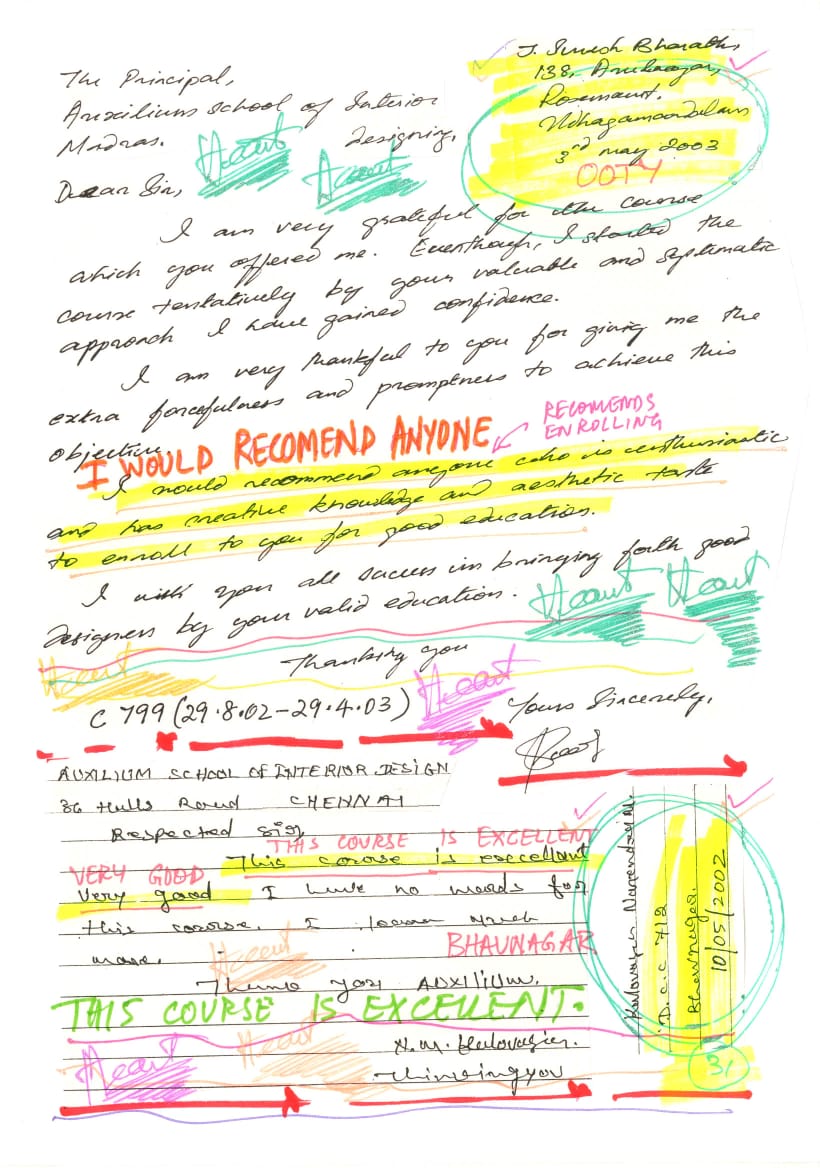 J. Suresh Bharath,
138,
Rosemount,
Udhagamandalam
3rd may 2003
OOTY
The Principal,
Auxilium School of Interior
Madras. designing,
Dear Sir,
I am very grateful for the course
which you offered me. Eventhough, I started the
course tentatively by your valuable and systematic
approach I have gained confidence.
I am very thankful to you for giving me the
extra forcefulness and promptness to achieve this
objective.
I WOULD RECOMEND ANYONE
RECOMENDS
ENROLLING
I would recommend anyone who is enthusiastic
and has creative knowledge and aesthetic taste
to enroll to you for good education.
I wish you all success in bringing forth good
designers by your valid education.
Thanking you
C 799 (29.8.02-29.4.03)
Yours Sincerely,
AUXILIUM SCHOOL OF INTERIOR DESIGN
36 Halls Road CHENNAI
Respected Sir,
THIS COURSE IS EXCELLENT
VERY GOOD This corose is excellant
Very good I have no words for
this corose. I loarn much
more.
BHAUNAGAR
Thank You AUXILIUM.
THIS COURSE IS EXCELLENT.
D.C.C 712
Bhavnagar.
10/05/2002
31